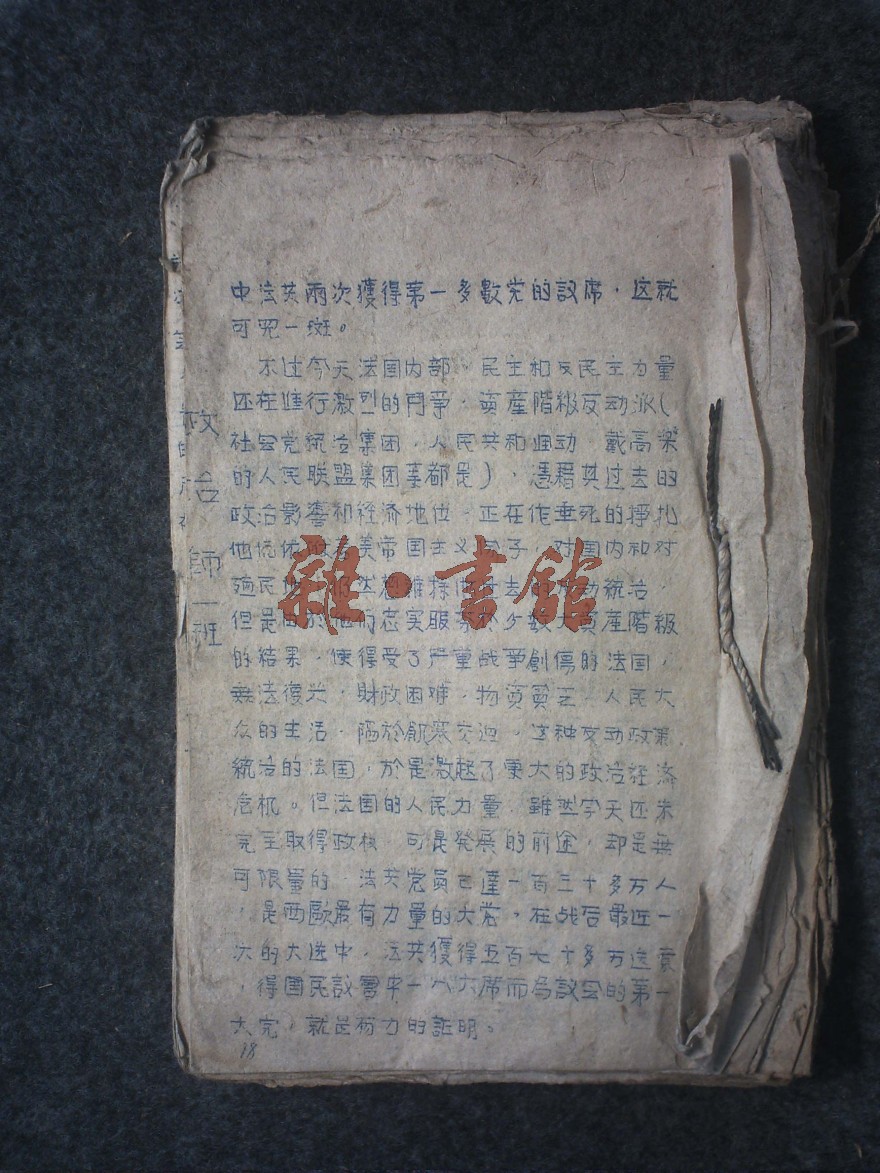 中法共兩次獲得第一多數党的議席，这就
可見一斑。
不过今天法国内部，民主和反民主力量
还在進行激烈的鬥爭，資產階級反动派（
社会党統治集团，人民共和運动，戴高樂
的人民联盟集团等都是），憑藉其过去的
政治影響和經济地位，正在作垂死的掙扎
他們依 美帝国主义 子，对国内和对
殖民地 仍然 維持 过去的 动統治，
但是由於他們忠实服務於少數大資產階級
的結果，使得受了严重战爭創傷的法国，
無法復兴，財政困难，物資貧乏，人民大
众的生活，陷於飢寒交迫，这种反动政策
統治的法国，於是激起了更大的政治經济
危机。但法国的人民力量，雖然今天还未
完全取得政权，可是發展的前途，却是無
可限量的，法共党員已達一百三十多万人
，是西歐最有力量的大党，在战后最近一
次的大选中，法共獲得五百七十多万选票
，得国民議會中一八六席而為議会的第一
大党，就是有力的証明。
18
政治師一班
雜·書館